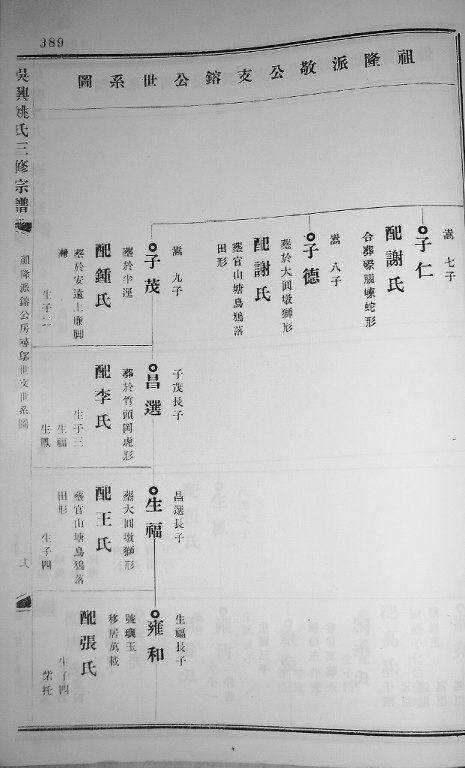 389
祖隆派敬公支鎔公世系圖
嵩七子
子仁
配謝氏
合葬
蛇形
嵩八子
子德
塟於大圓墩獅形
配謝氏
塟官山塘烏鴉落
田形
嵩九子
子茂
塟於半逕
配鍾氏
塟於安遠上廉脚
生子一
子茂長子
昌選
葬於竹頭岡虎形
配李氏
生子三
生福
生鳳
昌選長子
生福
塟大圓墩獅形
配王氏
塟官山塘烏鴉落
田形
生子四
生福長子
雍和
號璵玉
移居萬載
配張氏
生子四
吳興姚氏三修宗譜
祖隆派鎔公房尋鄔世文世系圖